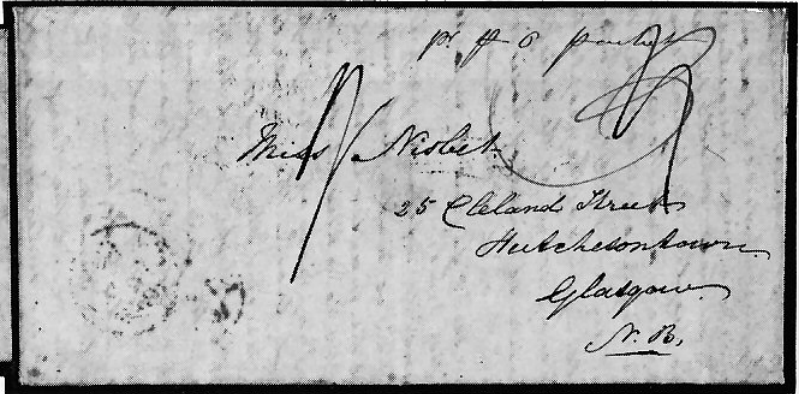 pr. P O packet
1/
Miss Nisbet
25 Cleland Street
Hutchesontown
Glasgow
N. B.